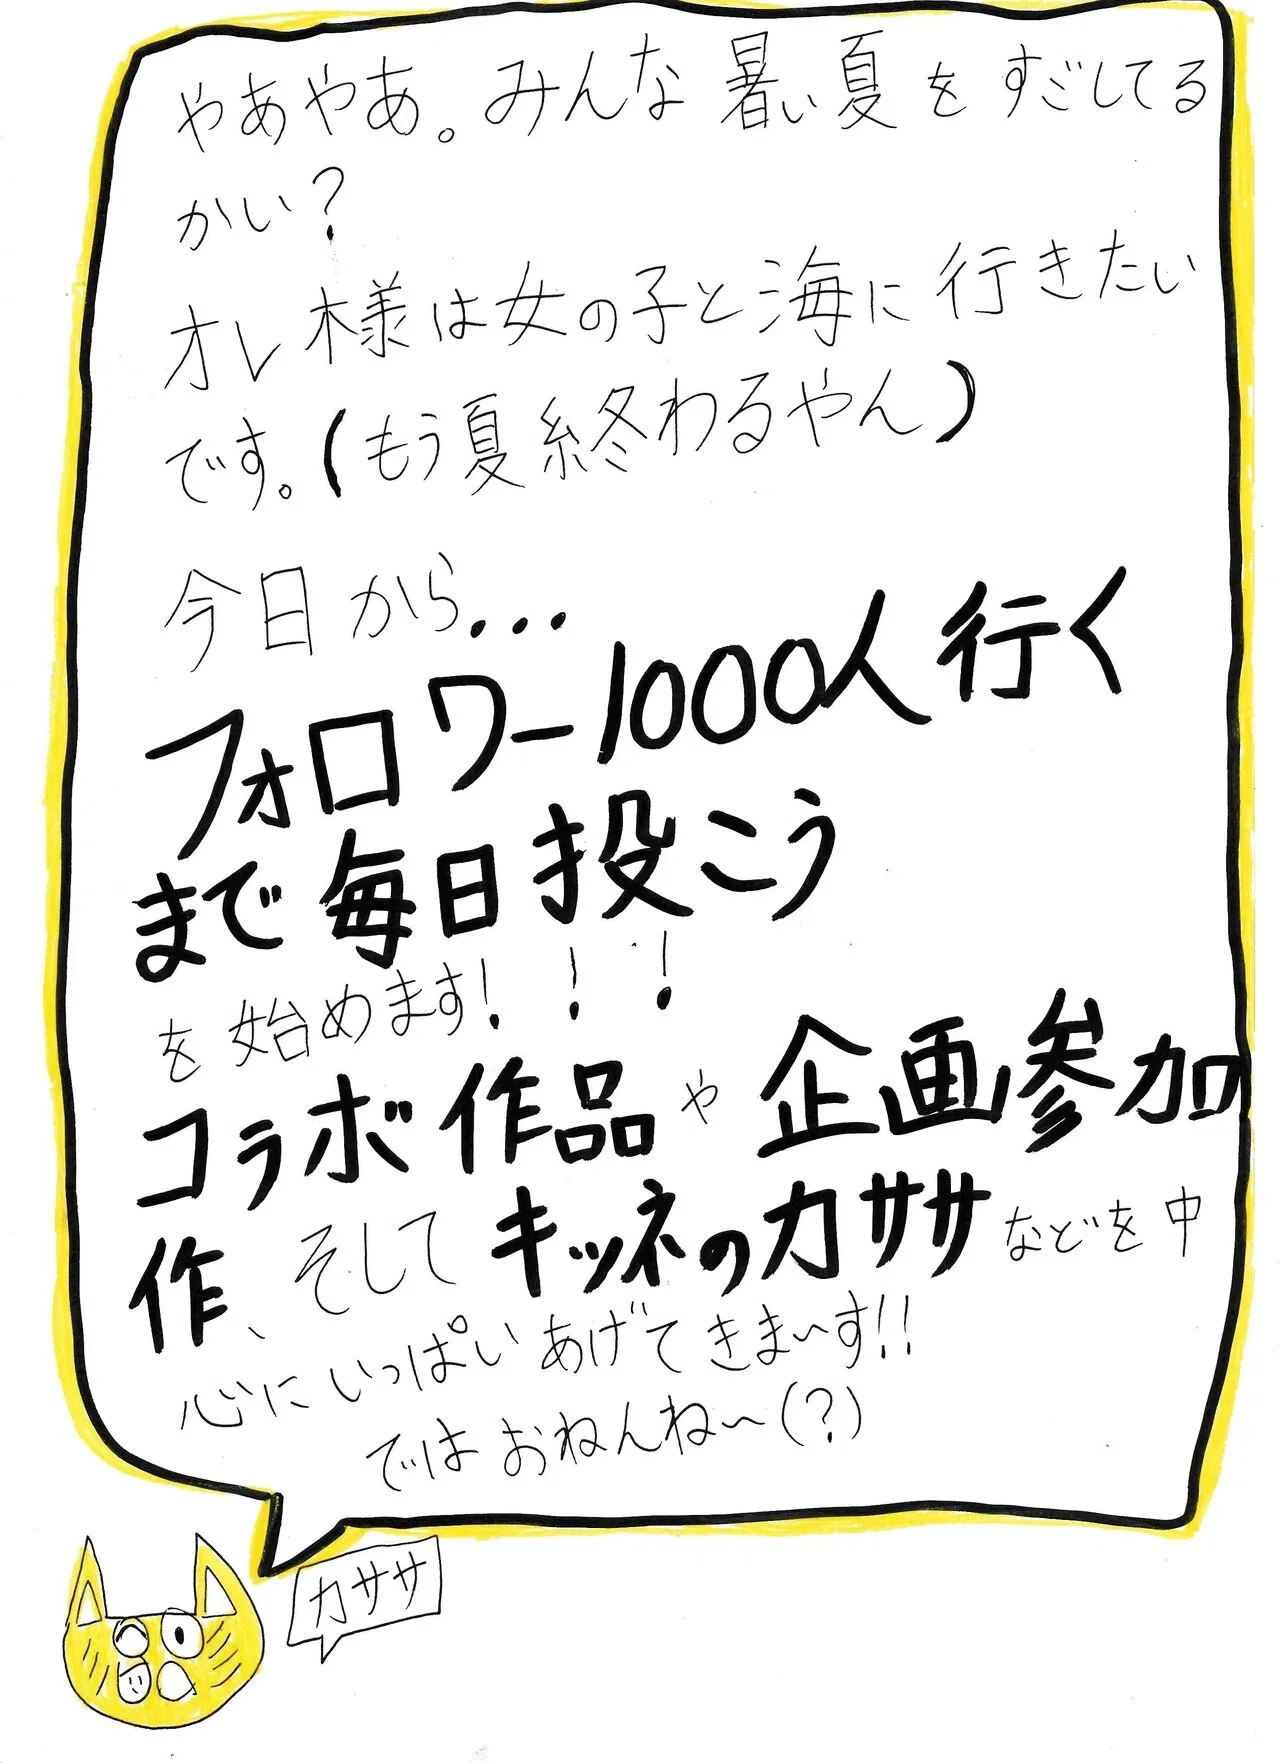 やあやあ。みんな暑い夏をすごしてる
かい？
オレ様は女の子と海に行きたい
です。(もう夏終わるやん)
今日から...
フォロワー1000人行く
まで毎日投こう
を始めます！！！
コラボ作品や企画参加
作、そしてキツネのカササなどを中
心にいっぱいあげてきま〜す!!
ではおねんね〜(?)
カササ